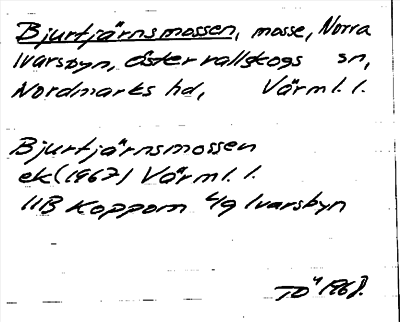 Bjurtjärnsmossen, mosse, Norra
Ivarsbyn, Östervallskogs sn,
Nordmarks hd, Värml. l.
Bjurtjärnsmossen
ek (1967) Värml. l.
11B Koppom 4g Ivarsbyn
TÖ 1968.